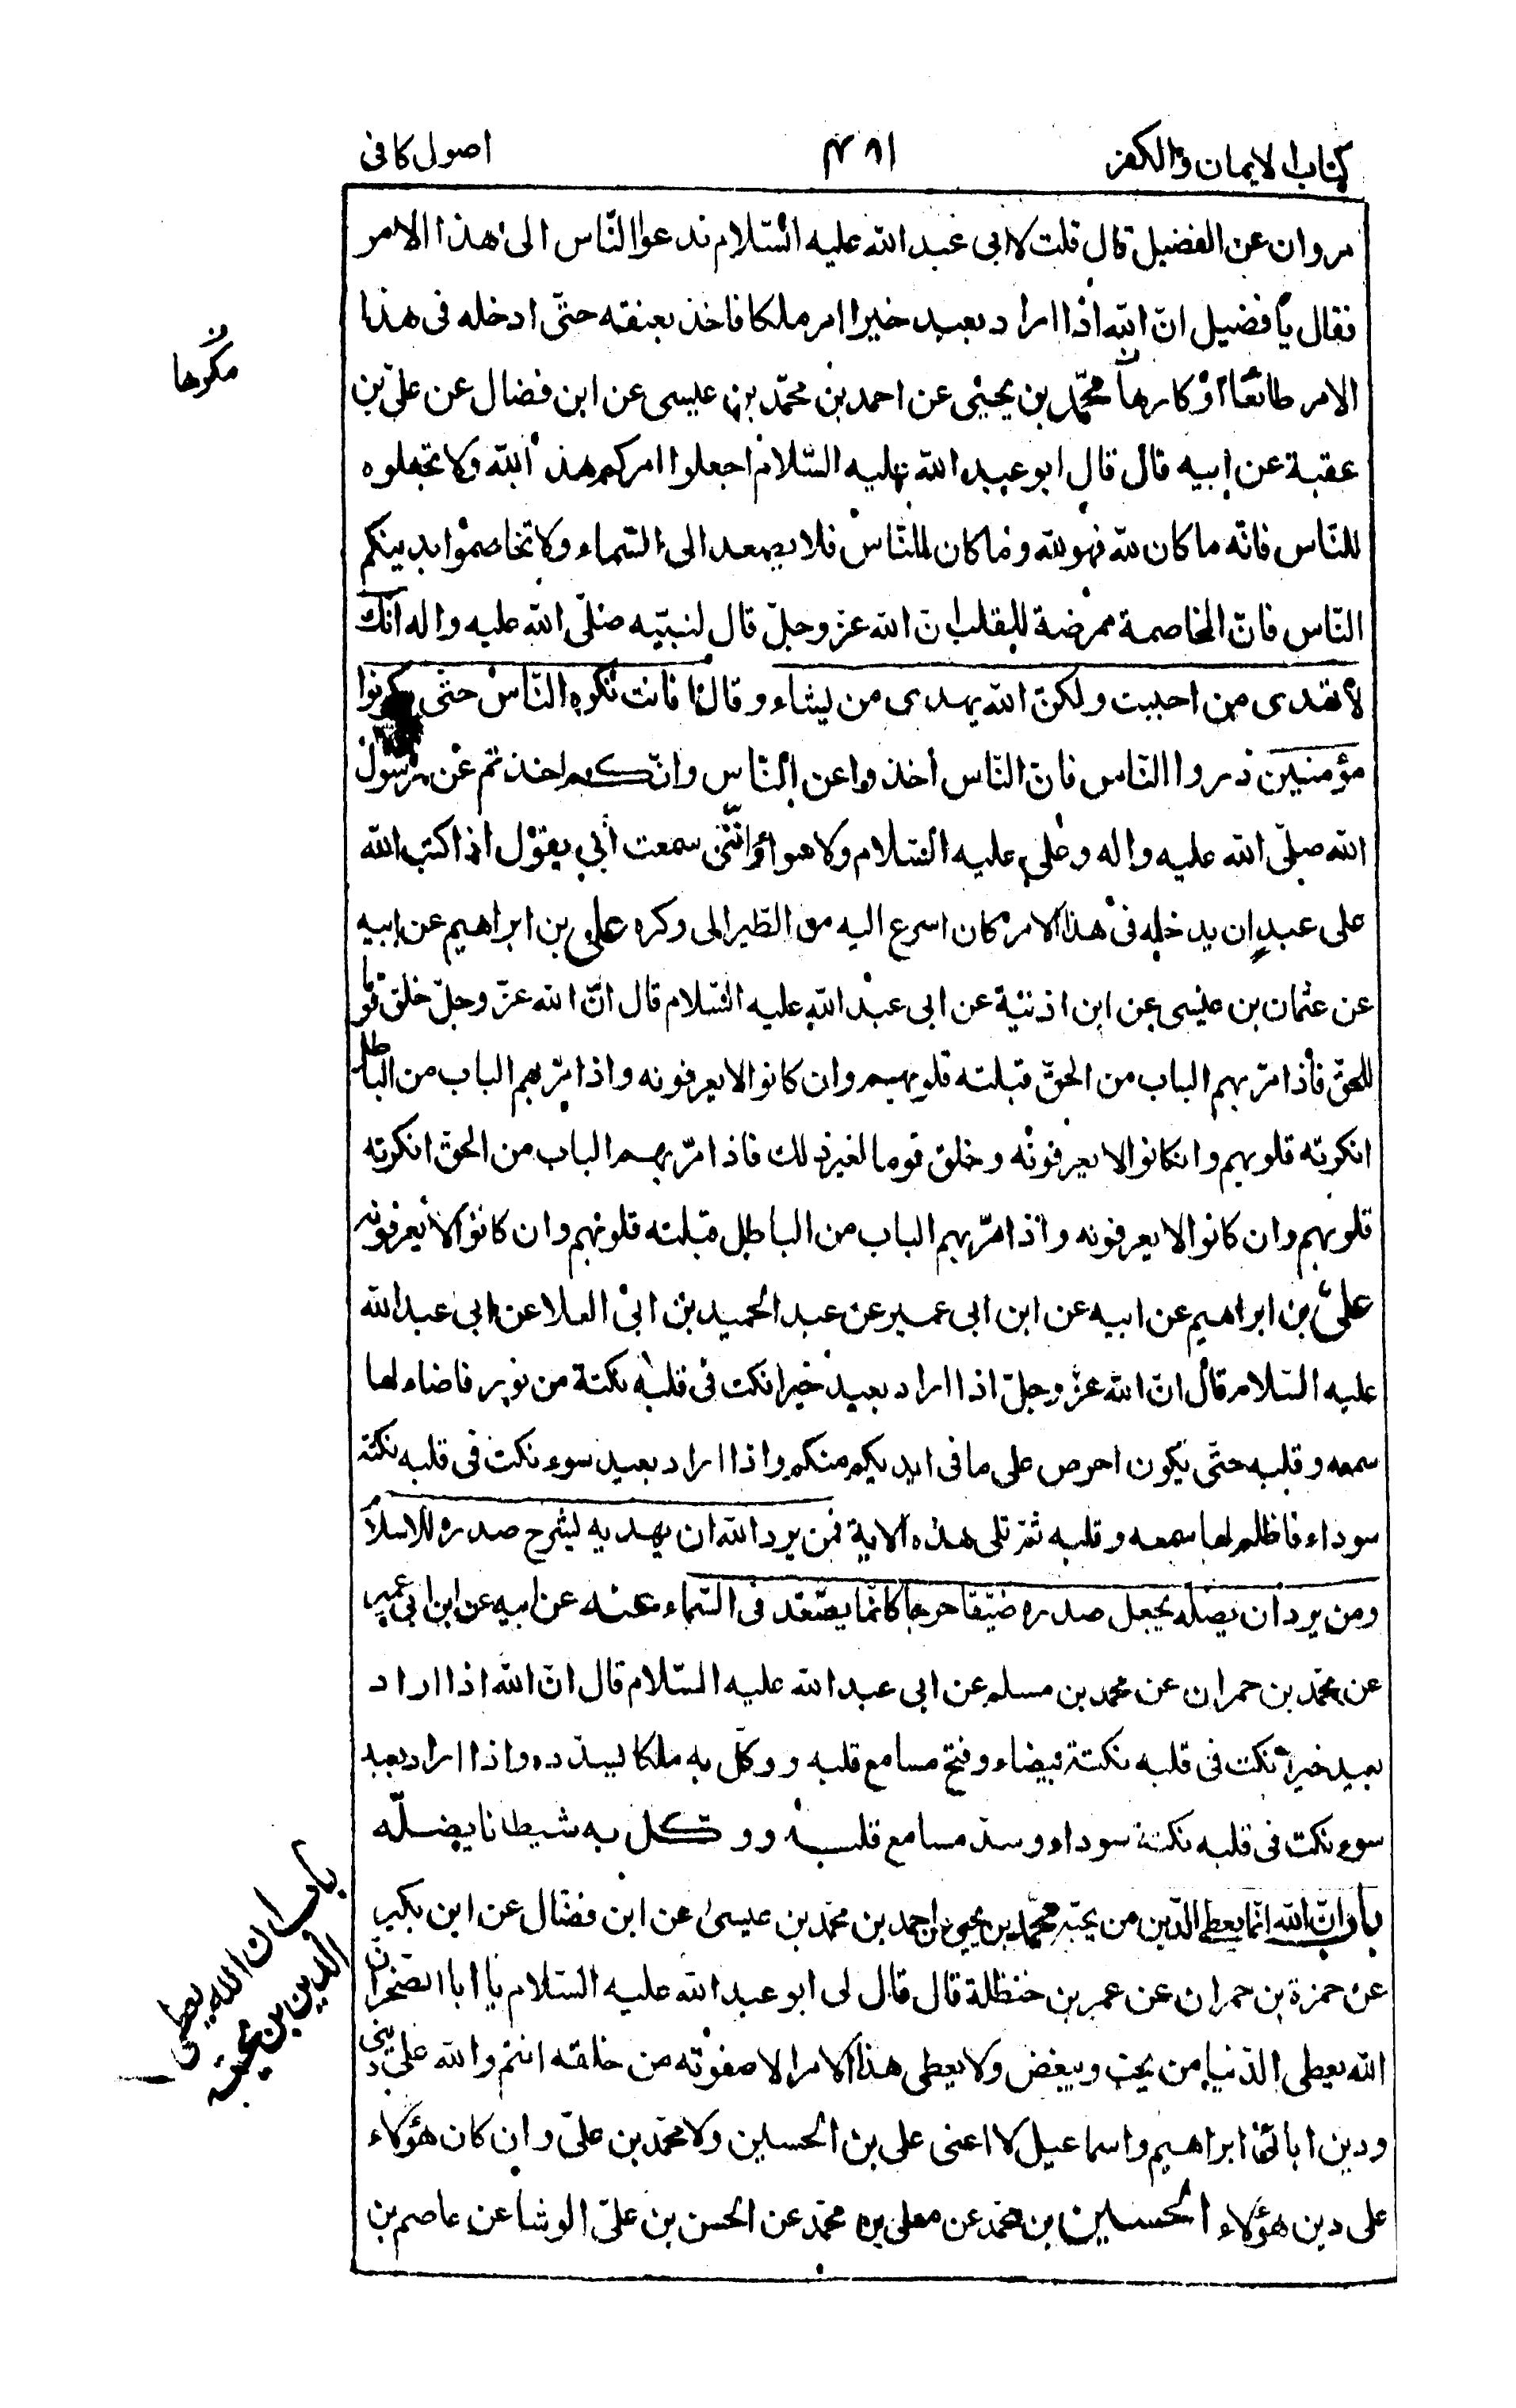 كتاب الايمان والكفر ٤٨١ اصول كافى
مروان عن الفضيل قال قلت لابى عبد الله عليه السّلام ندعوا النّاس الى هذا الامر
فقال يا فضيل انّ الله اذا اراد بعبد خيرا امر ملكا فاخذ بعنقه حتّى ادخله فى هذا
مكرها
الامر طائعًا او كارهاً محمّد بن يحيى عن احمد بن محمّد بن عيسى عن ابن فضال عن علىّ بن
عقبة عن ابيه قال قال ابو عبد الله عليه السّلام اجعلوا امركم هذا لله ولا تجعلوه
للنّاس فانّه ما كان لله فهو لله وما كان للنّاس فلا يصعد الى السّماء ولا تخاصموا بدينكم
النّاس فانّ المخاصمة ممرضة للقلب انّ الله عزّ وجلّ قال لنبيّه صلّى الله عليه واله انّك
لا تهدى من احببت ولكنّ الله يهدى من يشاء وقال افانت تكره النّاس حتّى يكونوا
مؤمنين ذروا النّاس فانّ النّاس اخذوا عن النّاس وانّكم اخذتم عن رسول
الله صلّى الله عليه واله وعلى عليه السّلام ولا سواء وانّنى سمعت ابي يقول اذا كتب الله
على عبد ان يدخله فى هذا الامر كان اسرع اليه من الطّير الى وكره على بن ابراهيم عن ابيه
عن عثمان بن عيسى عن ابن اذينة عن ابى عبد الله عليه السّلام قال انّ الله عزّ وجلّ خلق قوما
للحقّ فاذا مرّ بهم الباب من الحقّ قبلته قلوبهم وان كانوا لا يعرفونه واذا مرّ بهم الباب من الباطل
انكرته قلوبهم وان كانوا لا يعرفونه وخلق قوما لغير ذلك فاذا مرّ بهم الباب من الحقّ انكرته
قلوبهم وان كانوا لا يعرفونه واذا مرّ بهم الباب من الباطل قبلته قلوبهم وان كانوا لا يعرفونه
علىّ بن ابراهيم عن ابيه عن ابن ابى عمير عن عبد الحميد بن ابى العلا عن ابى عبد الله
عليه السّلام قال انّ الله عزّ وجلّ اذا اراد بعبد خيرا نكت فى قلبه نكتة من نور فاضاء لها
سمعه وقلبه حتّى يكون احرص على ما فى ايديكم منكم واذا اراد بعبد سوء نكت فى قلبه نكتة
سوداء فاظلم لها سمعه وقلبه ثمّ تلى هذه الاية فمن يرد الله ان يهديه يشرح صدره للاسلام
ومن يرد ان يضله يجعل صدره ضيّقا حرجا كانّما يصّعّد فى السّماء عنه عن ابيه عن ابن ابى عمير
عن محمّد بن حمران عن محمد بن مسلم عن ابى عبد الله عليه السّلام قال انّ الله اذا اراد
بعبد خيرا نكت فى قلبه نكتة بيضاء وفتح مسامع قلبه ووكّل به ملكا يسدّده واذا اراد بعبد
سوء نكت فى قلبه نكتة سوداء وسدّ مسامع قلبه ووكّل به شيطانا يضلّه
باب ان الله يعطى
الدين من يحبه
باب انّ الله انّما يعطى الدّين من يحبّه محمّد بن يحيى عن احمد بن محمّد بن عيسىٰ عن ابن فضّال عن ابن بكير
عن حمزة بن حمران عن عمر بن حنظلة قال قال لى ابو عبد الله عليه السّلام يا ابا الصّخر انّ
الله يعطى الدّنيا من يحبّ ويبغض ولا يعطى هذا الامر الا صفوته من خلقه انتم والله على دينى
ودين ابائى ابراهيم واسماعيل لا اعنى على بن الحسين ولا محمّد بن علىّ وان كان هؤلاء
على دين هؤلاء الحسين بن محمّد عن معلى بن محمّد عن الحسن بن علىّ الوشا عن عاصم بن